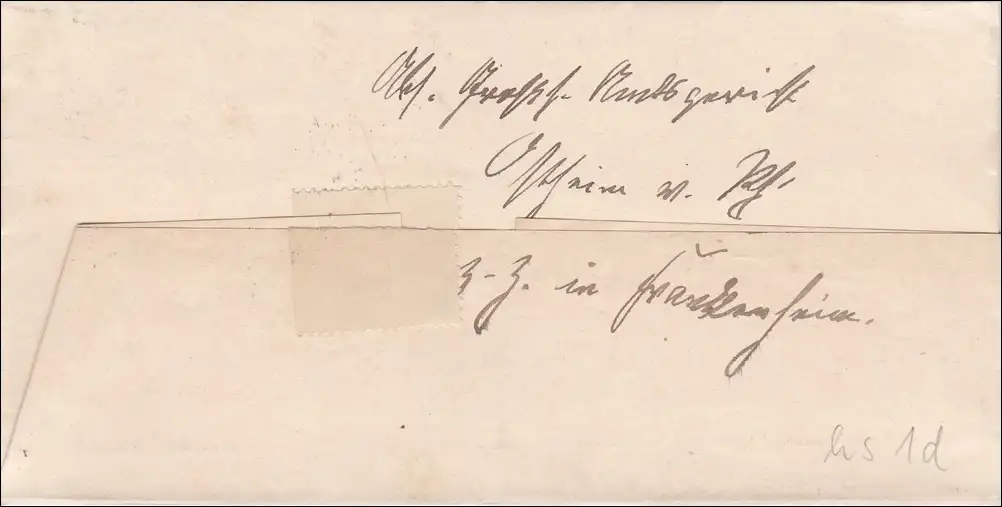 Abs. Großh. Amtsgericht
Ostheim v. Rh.
z. Z. in Frankenheim.
hs 1d